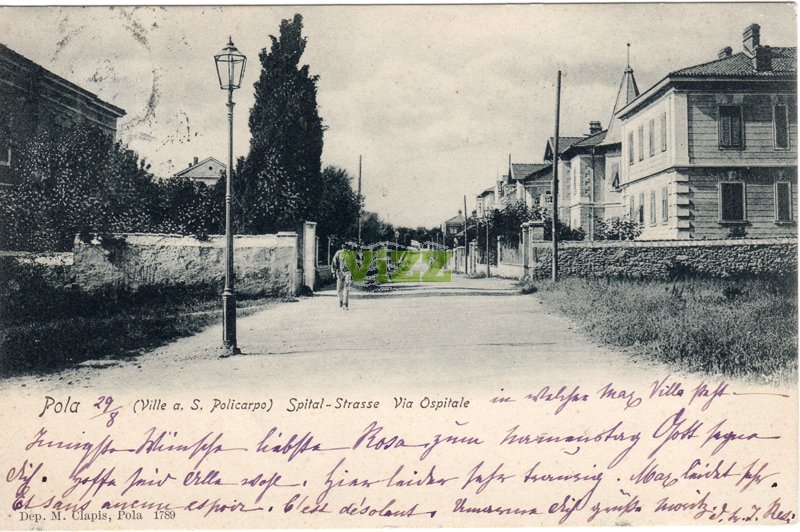 vizz
Pola 29/8 (Ville a. S. Policarpo) Spital-Strasse Via Ospitale in welcher Max Villa hat
Innigste Wünsche liebste Rosa zum Namenstag Gott segne
Dich. hoffe seid Alle wohl. Hier leider sehr traurig. Max leidet sehr.
Et sans aucun espoir. C'est désolant. Umarme Dich grüße Moritz.
Dep. M. Clapis, Pola 1789